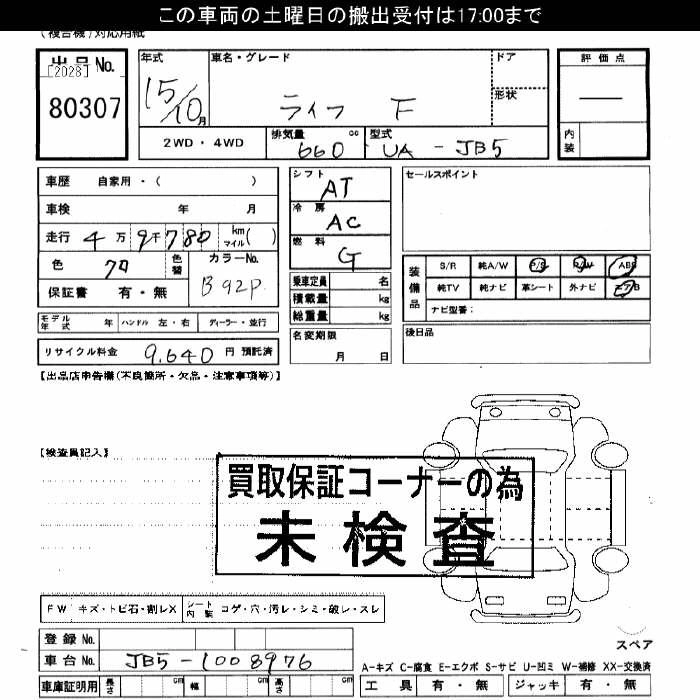 この車両の土曜日の搬出受付は17:00まで
(複合機)対応用紙
出品No.
[2028]
80307
年式
15/10月
車名・グレード
ライフ F
ドア
形状
評価点
内装
2WD・4WD
排気量 cc
660
型式
UA - JB5
車歴 自家用・( )
車検 年 月
走行 4万9千780 km マイル( )
色 クロ 色替
カラーNo.
B92P
保証書 有・無
シフト
AT
冷房
AC
燃料
G
乗車定員 名
積載量 kg
総重量 kg
セールスポイント
装備品
S/R 純A/W P/S P/W ABS
純TV 純ナビ 革シート 外ナビ エアB
ナビ型番:
モデル年式 年 ハンドル 左・右 ディーラー・並行
名変期限
月 日
後日品
リサイクル料金 9,640 円 預託済
【出品店申告欄(不良箇所・欠品・注意事項等)】
【検査員記入】
買取保証コーナーの為
未検査
FW キズ・トビ石・割レX
シート内装 コゲ・穴・汚レ・シミ・破レ・スレ
登録No.
車台No. JB5-1008976
スペア
A-キズ C-腐食 E-エクボ S-サビ U-凹ミ W-補修 XX-交換済
車庫証明用 長さ cm 幅 cm 高さ cm
工具 有・無 ジャッキ 有・無